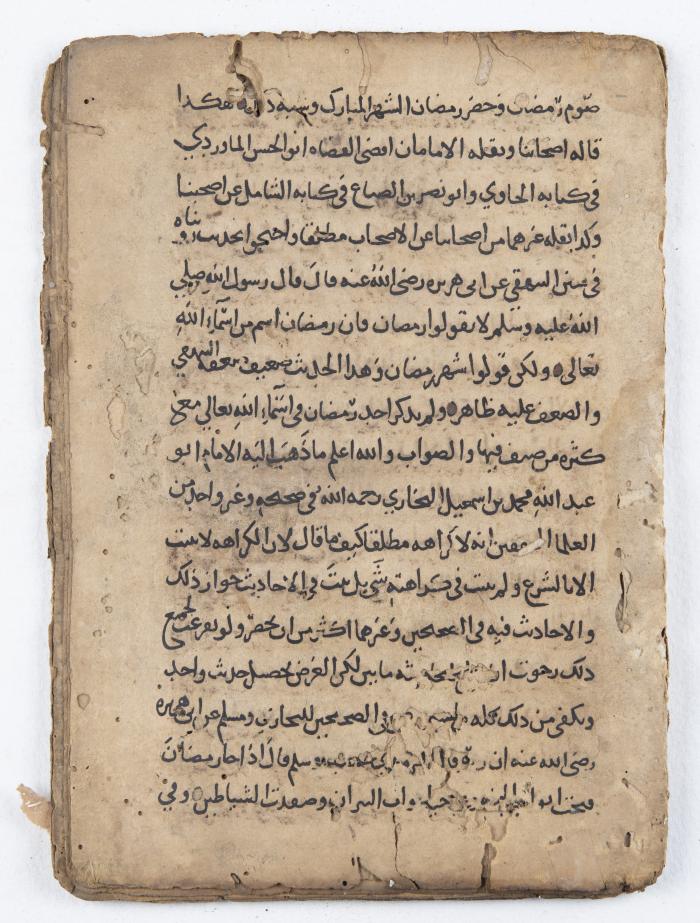 صوم رمضان وحضر رمضان الشهر المبارك وشبه هكذا
قاله اصحابنا ونقله الامامان اقضى القضاه ابو الحسن الماوردي
في كتابه الحاوي وابو نصر بن الصباغ في كتابه الشامل عن اصحبنا
وكذا نقله غيرهما من اصحابنا عن الاصحاب مطلقا واحتجوا بحديث رويناه
في سنن البيهقي عن ابي هريره رضي الله عنه قال قال رسول الله صلى
الله عليه وسلم لا تقولوا رمضان فان رمضان اسم من اسماء الله
تعالى ولكن قولوا شهر رمضان وهذا الحديث ضعيف ضعفه البيهقي
والضعف عليه ظاهر ولم يذكر احد رمضان في اسماء الله تعالى مع
كثره من صنف فيها والصواب والله اعلم ما ذهب اليه الامام ابو
عبد الله محمد بن اسمعيل البخاري رحمه الله في صحيحه وغير واحد من
العلما المحققين انه لا كراهه مطلقا كيف ما قال لان الكراهه لا تثبت
الا بالشرع ولم يثبت في كراهته شي بل ثبت في الاحاديث جواز ذلك
والاحاديث فيه في الصحيحين وغيرهما اكثر من ان تحصر ولو تفرغت لجمع
ذلك رجوت ان مايتين لكن الغرض يحصل بحديث واحد
ويكفي من ذلك كله الصحيحين للبخاري ومسلم عن ابي هريره
رضي الله عنه ان وسلم قال اذا جا رمضان
فتحت ابواب وابواب النيران وصفدت الشياطين وفي